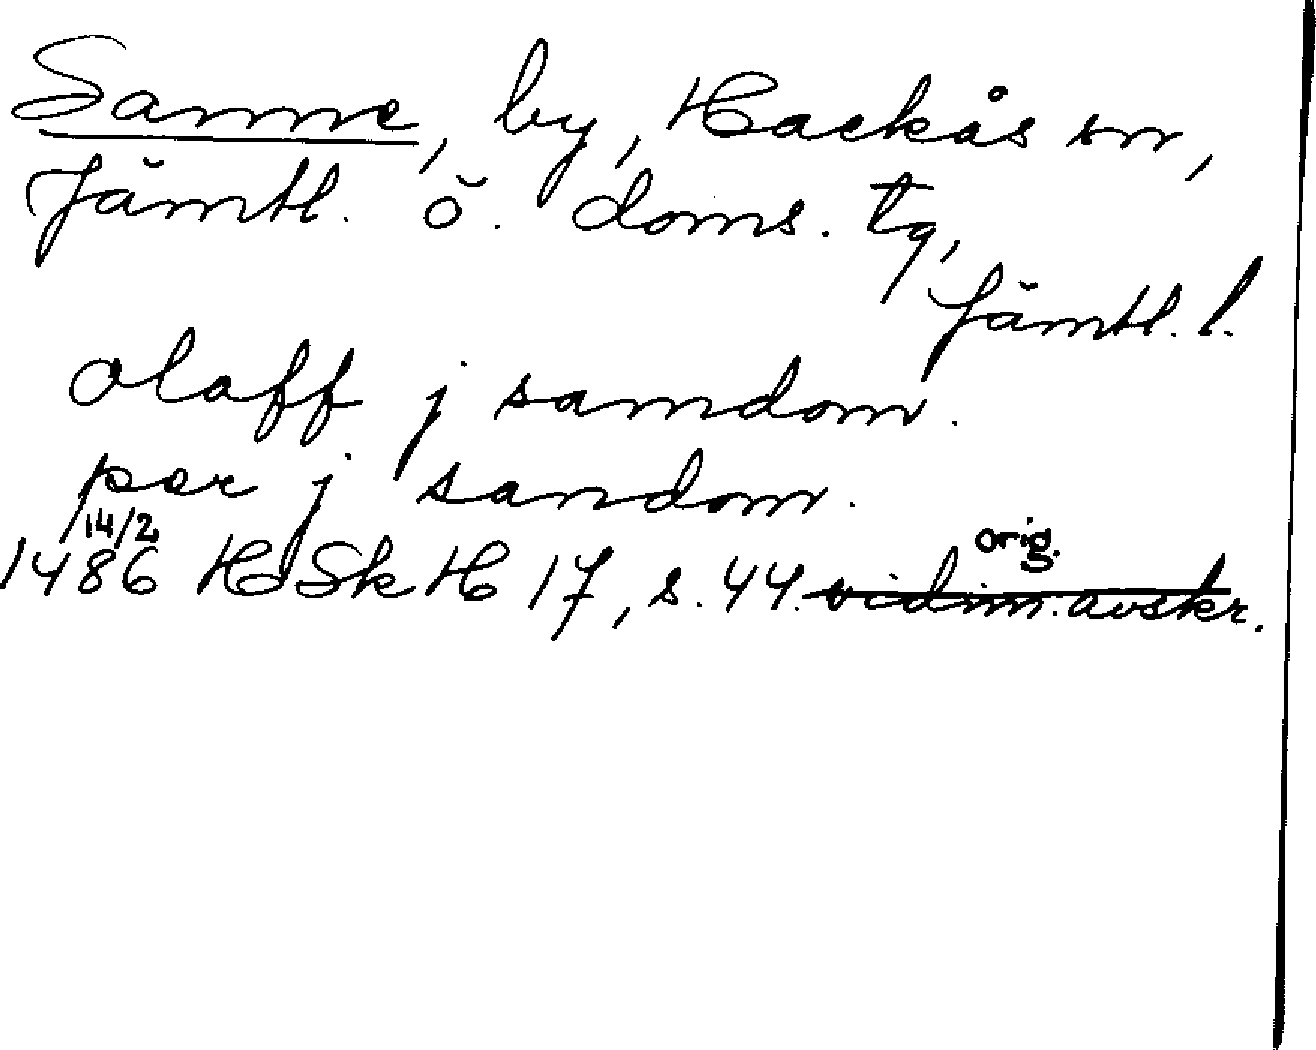 Sanne, by, Hackås sn,
Jämtl. ö. doms. tg,
Jämtl. l.
olaff j samdom.
per j sandom.
14/2
1486 HdSkH 17, s. 44. vidim. avskr.
orig.